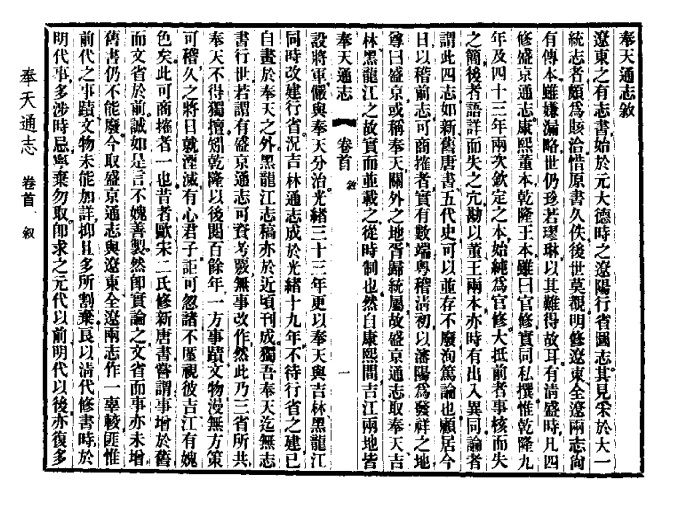 奉天通志敘
遼東之有志書始於元大德時之遼陽行省圖志其見采於大一
統志者頗為賅洽惜原書久佚後世莫覩明修遼東全遼兩志尚
有傳本雖嫌漏略世仍珍若璆琳以其難得故耳有清盛時凡四
修盛京通志康熙董本乾隆王本雖曰官修實同私撰惟乾隆九
年及四十三年兩次欽定之本始純為官修大抵前者事核而失
之簡後者語詳而失之宂勘以董王兩本亦時有出入異同論者
謂此四志如新舊唐書五代史可以並存不廢洵篤論也顧居今
日以稽前志可商搉者實有數端粵稽清初以瀋陽為發祥之地
尊曰盛京或稱奉天關外之地胥歸統屬故盛京通志取奉天吉
林黑龍江之故實而並載之從時制也然自康熙間吉江兩地皆
奉天通志 卷首 敘 一
設將軍儼與奉天分治光緒三十三年更以奉天與吉林黑龍江
同時改建行省況吉林通志成於光緒十九年不待行省之建已
自畫於奉天之外黑龍江志稿亦於近頃刊成獨吾奉天迄無志
書行世若謂有盛京通志可資考覈無事改作然此乃三省所共
奉天不得獨擅矧乾隆以後閱百餘年一方事蹟文物漫無方策
可稽久之將日就湮滅有心君子詎可忽諸不厪視彼吉江有媿
色矣此可商搉者一也昔者歐宋二氏修新唐書嘗謂事增於舊
而文省於前誠如是言不媿善製然卽實論之文省而事亦未增
舊書仍不能廢今取盛京通志與遼東全遼兩志作一辜較匪惟
前代之事蹟文物未能加詳抑且多所割棄良以清代修書時於
明代事多涉時忌寧棄勿取卽求之元代以前明代以後亦復多
奉天通志 卷首 敘